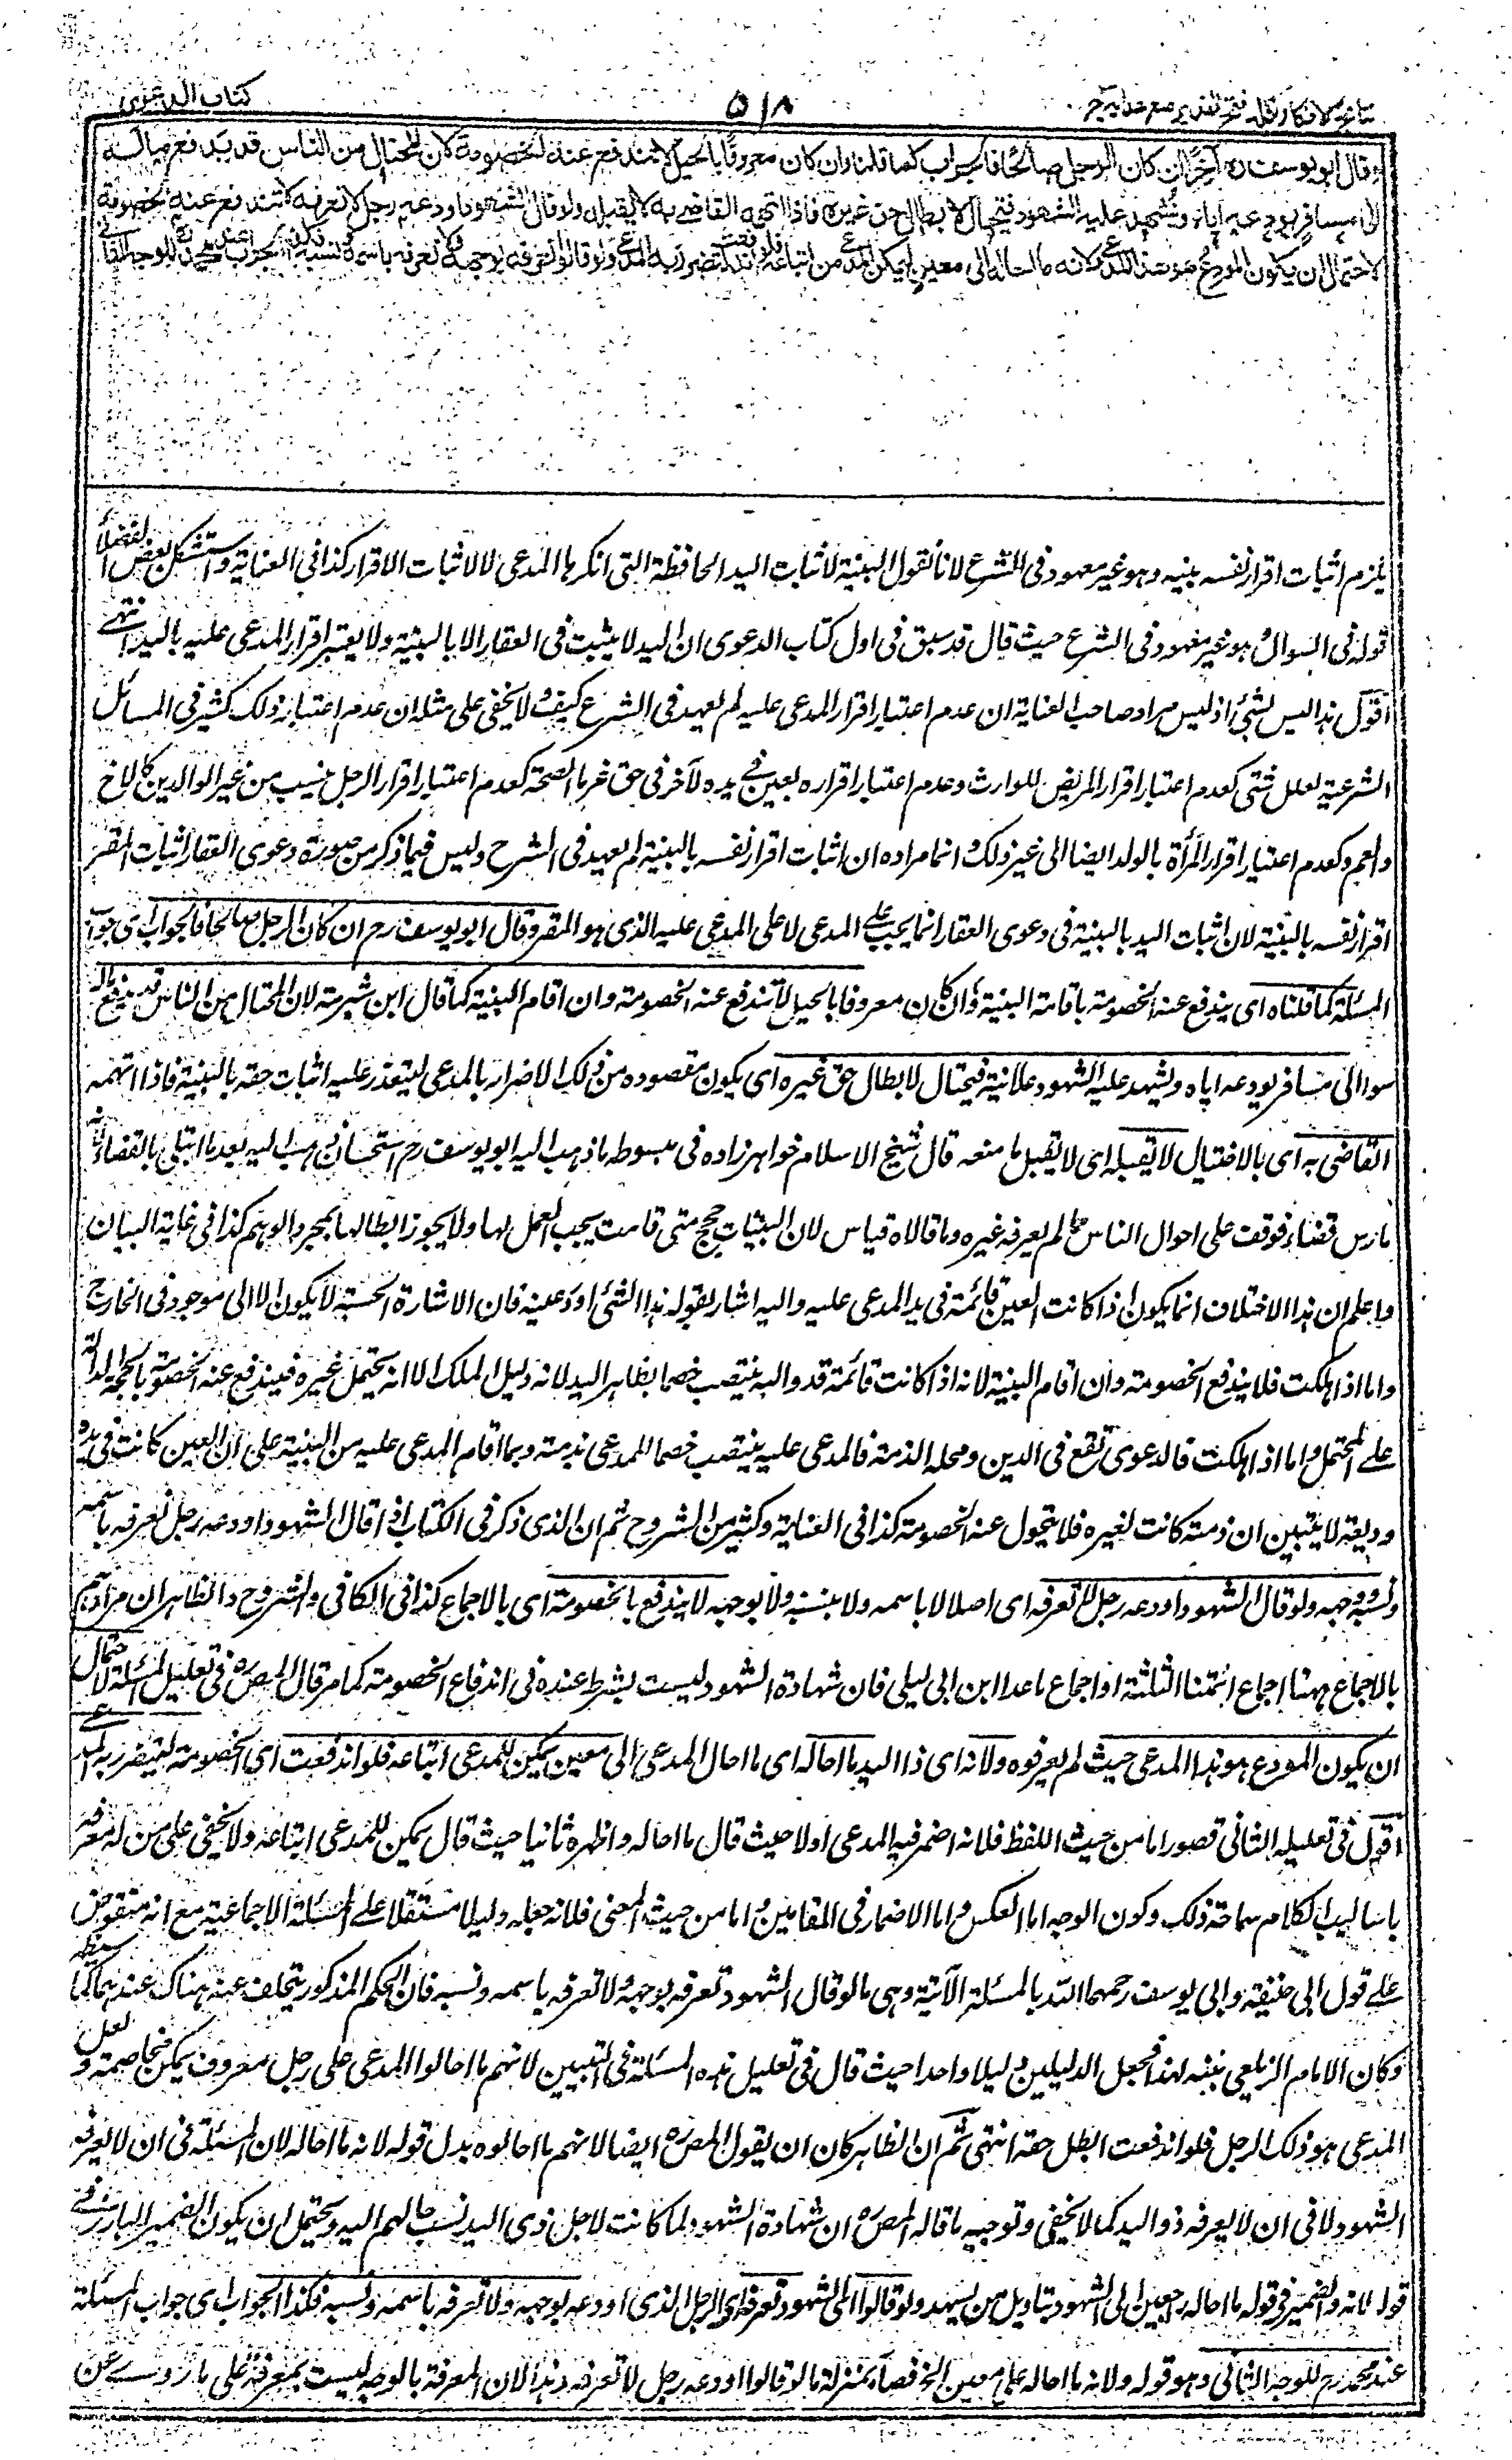 نتائج الافكار تكملہ فتح القدير مع هدايہ ج
٥١٨
كتاب الدعوى
وقال ابو يوسف رہ آخرًا ان كان الرجل صالحًا فالجواب كما قلنا وان كان معروفًا بالحيل لا تندفع عنه الخصومة لان المحتال من الناس قد يدفع ماله
الى مسافر يودعه اياه ويشهد عليه الشهود فيحتال لابطال حق غيره فاذا اتهمه القاضى به لا يقبله ولو قال الشهود اودعه رجل لا نعرفه لا تندفع عنه الخصومة
لاحتمال ان يكون المودع هو هذا المدعى ولانه ما احاله الى معين ليمكن المدعى من اتباعه فلو اندفعت لتضرر به المدعى ولو قالوا نعرفه بوجهه ولا نعرفه باسمه ونسبه فكذلك الجواب عند محمد رح للوجه الثانى
يلزم اثبات اقرار نفسه ببينة وهو غير معهود فى الشرع لانا نقول البينة لاثبات اليد الحافظة التى انكرها المدعى لا لاثبات الاقرار كذا فى العناية واستشكل بعض الفضلاء
قوله فى السوال وهو غير معهود فى الشرع حيث قال قد سبق فى اول كتاب الدعوى ان اليد لا يثبت فى العقار الا بالبينة ولا يعتبر اقرار المدعى عليه باليد انتهى
اقول هذا ليس بشئ اذ ليس مراد صاحب العناية ان عدم اعتبار اقرار المدعى عليه لم يعهد فى الشرع كيف ولا يخفى على مثله ان عدم اعتبار ذلك كثير فى المسائل
الشرعية لعلل شتى كعدم اعتبار اقرار المريض للوارث وعدم اعتبار اقراره بعين فى يده لآخر فى حق غرماء الصحة كعدم اعتبار اقرار الرجل بنسب من غير الوالدين كالاخ
والعم وكعدم اعتبار اقرار المرأة بالولد ايضا الى غير ذلك وانما مراده ان اثبات اقرار نفسه بالبينة لم يعهد فى الشرع وليس فيما ذكر من صورة دعوى العقار اثبات المقر
اقرار نفسه بالبينة لان اثبات اليد بالبينة فى دعوى العقار انما يجب على المدعى لا على المدعى عليه الذى هو المقر وقال ابو يوسف رح ان كان الرجل صالحا فالجواب اى جواب
المسئلة كما قلناه اى يندفع عنه الخصومة باقامة البينة وان كان معروفا بالحيل لا تندفع عنه الخصومة وان اقام البينة كما قال ابن شبرمة لان المحتال من الناس قد يدفع ماله
سرا الى مسافر يودعه اياه ويشهد عليه الشهود علانية فيحتال لابطال حق غيره اى يكون مقصوده من ذلك الاضرار بالمدعى ليتعذر عليه اثبات حقه بالبينة فاذا اتهمه
القاضى به اى بالاحتيال لا يقبله اى لا يقبل ما صنعه قال شيخ الاسلام خواهر زاده فى مبسوطه ما ذهب اليه ابو يوسف رح استحسان ذهب اليه بعد ما ابتلى بالقضاء لانه
مارس قضاء فوقف على احوال الناس ما لم يعرفه غيره وما قالاه قياس لان البينات حجج متى قامت يجب العمل بها ولا يجوز ابطالها بمجرد الوهم كذا فى غاية البيان
واعلم ان هذا الاختلاف انما يكون اذا كانت العين قائمة فى يد المدعى عليه واليه اشار بقوله هذا الشئ اودعنيه فان الاشارة الحسية لا يكون الا الى موجود فى الخارج
واما اذا هلكت فلا يندفع الخصومة وان اقام البينة لانه اذا كانت قائمة قد والبه ينتصب خصما بظاهر اليد لانه دليل الملك الا انه يحتمل غيره فيندفع عنه الخصومة بالحجة الدالة
على المحتمل واما اذا هلكت فالدعوى تقع فى الدين ومحله الذمة فالمدعى عليه ينتصب خصما للمدعى بذمته وبما اقام المدعى عليه من البينة على ان العين كانت فى يده
وديعة لا يتبين ان ذمته كانت لغيره فلا يتحول عنه الخصومة كذا فى العناية وكثير من الشروح ثم ان الذى ذكر فى الكتاب اذا قال الشهود اودعه رجل نعرفه باسمه
ونسبه ووجهه ولو قال الشهود اودعه رجل لا نعرفه اى اصلا لا باسمه ولا بنسبه ولا بوجهه لا يندفع به الخصومة اى بالاجماع كذا فى الكافى والشروح والظاهر ان مرادهم
بالاجماع ههنا اجماع ائمتنا الثلثة او اجماع ما عدا ابن ابى ليلى فان شهادة الشهود ليست بشرط عنده فى اندفاع الخصومة كما مر قال المصرہ فى تعليل المسئلة لاحتمال
ان يكون المودع هو هذا المدعى حيث لم يعرفوه ولانه اى ذا اليد ما احاله اى ما احال المدعى الى معين يمكن للمدعى اتباعه فلو اندفعت اى الخصومة لتضرر به المدعى
اقول فى تعليله الثانى قصور اما من حيث اللفظ فلانه اضمر فيه المدعى اولا حيث قال ما احاله واظهره ثانيا حيث قال يمكن للمدعى اتباعه ولا يخفى على من له معرفة
باساليب الكلام سماجة ذلك وكون الوجه اما العكس واما الاضمار فى المقامين واما من حيث المعنى فلانه جعله دليلا مستقلا على المسئلة الاجماعية مع انه منقوض
على قول ابى حنيفة وابى يوسف رحمهما الله بالمسئلة الآتية وهى ما لو قال الشهود نعرفه بوجهه ولا نعرفه باسمه ونسبه فان الحكم المذكور يتخلف عنه هناك عندهما كما سيظهر
وكان الامام الزيلعى تنبه لهذا فجعل الدليلين دليلا واحدا حيث قال فى تعليل هذه المسئلة فى التبيين لانهم ما احالوا المدعى على رجل معروف يمكن مخاصمته ولعل
المدعى هو ذلك الرجل فلو اندفعت لبطل حقه انتهى ثم ان الظاهر كان ان يقول المصرہ ايضا لانهم ما احالوه بدل قوله لانه ما احاله لان المسئلة فى ان لا يعرفه
الشهود لا فى ان لا يعرفه ذو اليد كما لا يخفى وتوجيه ما قاله المصرہ ان شهادة الشهود لما كانت لاجل ذى اليد نسب حالهم اليه ويحتمل ان يكون الضمير البارز فى
قوله لانه والضمير فى قوله ما احاله راجعين الى الشهود بتاويل من يشهد ولو قالوا اى الشهود نعرفه اى الرجل الذى اودعه بوجهه ولا نعرفه باسمه ونسبه فكذا الجواب اى جواب المسئلة
عند محمد رح للوجه الثانى وهو قوله ولانه ما احاله على معين الخ فصار بمنزلة ما لو قالوا اودعه رجل لا نعرفه وهذا لان المعرفة بالوجه ليست بمعرفة على ما روى عن